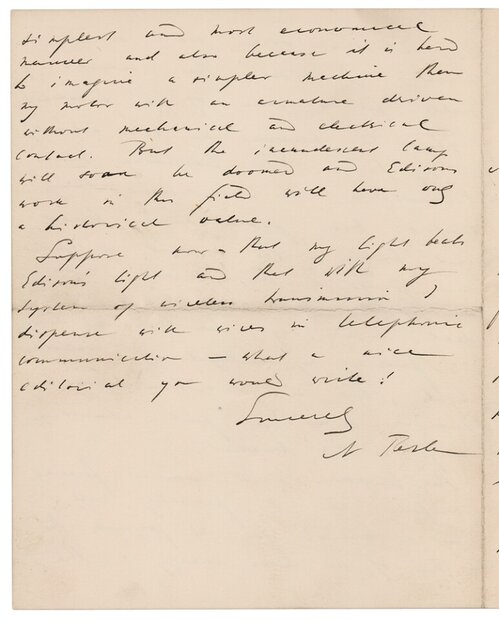 simplest and most economical
manner and also because it is hard
to imagine a simpler machine than
my motor with an armature driven
without mechanical and electrical
contact. But the incandescent lamp
will soon be doomed and Edison's
work in this field will have only
a historical value.
Suppose now – that my light beats
Edison's light and that with my
system of wireless transmission I
dispense with wires in telephonic
communication – what a nice
editorial you would write!
Sincerely
N Tesla